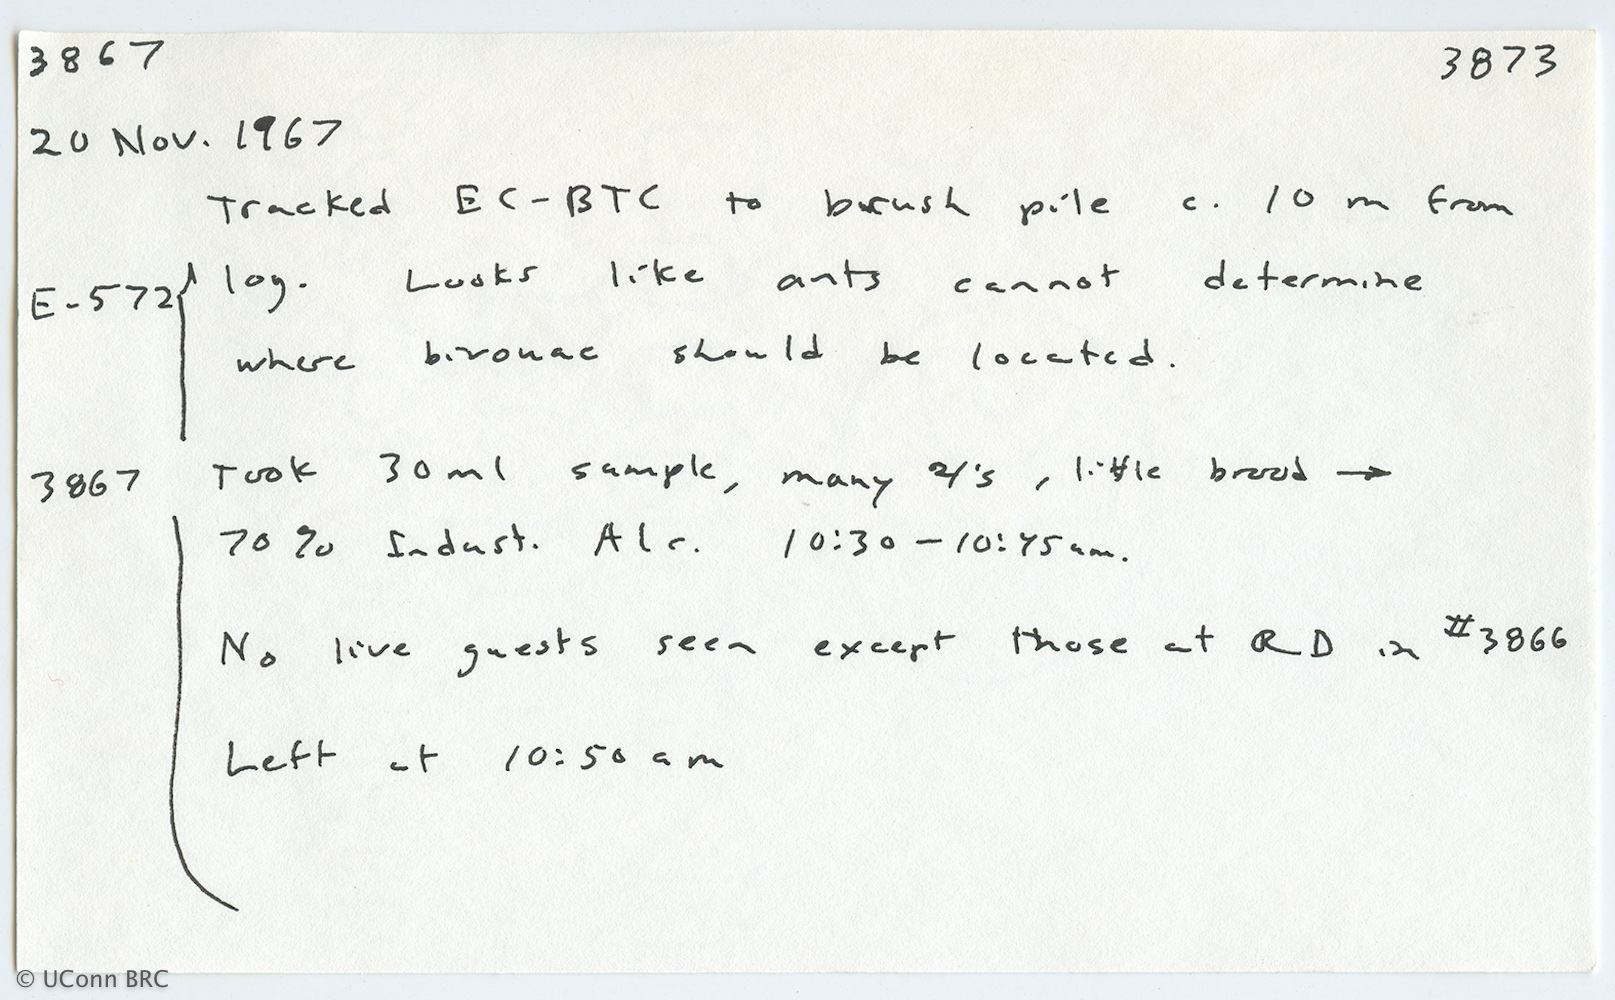 3867 3873
20 Nov. 1967
Tracked EC-BTC to brush pile c. 10 m from
E-572 log. Looks like ants cannot determine
where bivouac should be located.
3867 Took 30 ml sample, many 's, little brood →
70% Indust. Alc. 10:30 - 10:45 am.
No live guests seen except those at RD in #3866
Left at 10:50 am
© UConn BRC